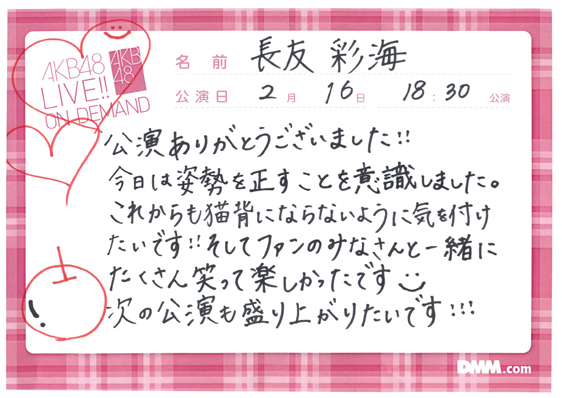 AKB48
LIVE!!
ON DEMAND
AKB
48
名前 長友 彩海
公演日 2月 16日 18:30 公演
公演ありがとうございました!!
今日は姿勢を正すことを意識しました。
これからも猫背にならないように気を付け
たいです!!そしてファンのみなさんと一緒に
たくさん笑って楽しかったです
次の公演も盛り上がりたいです!!!
DMM.com